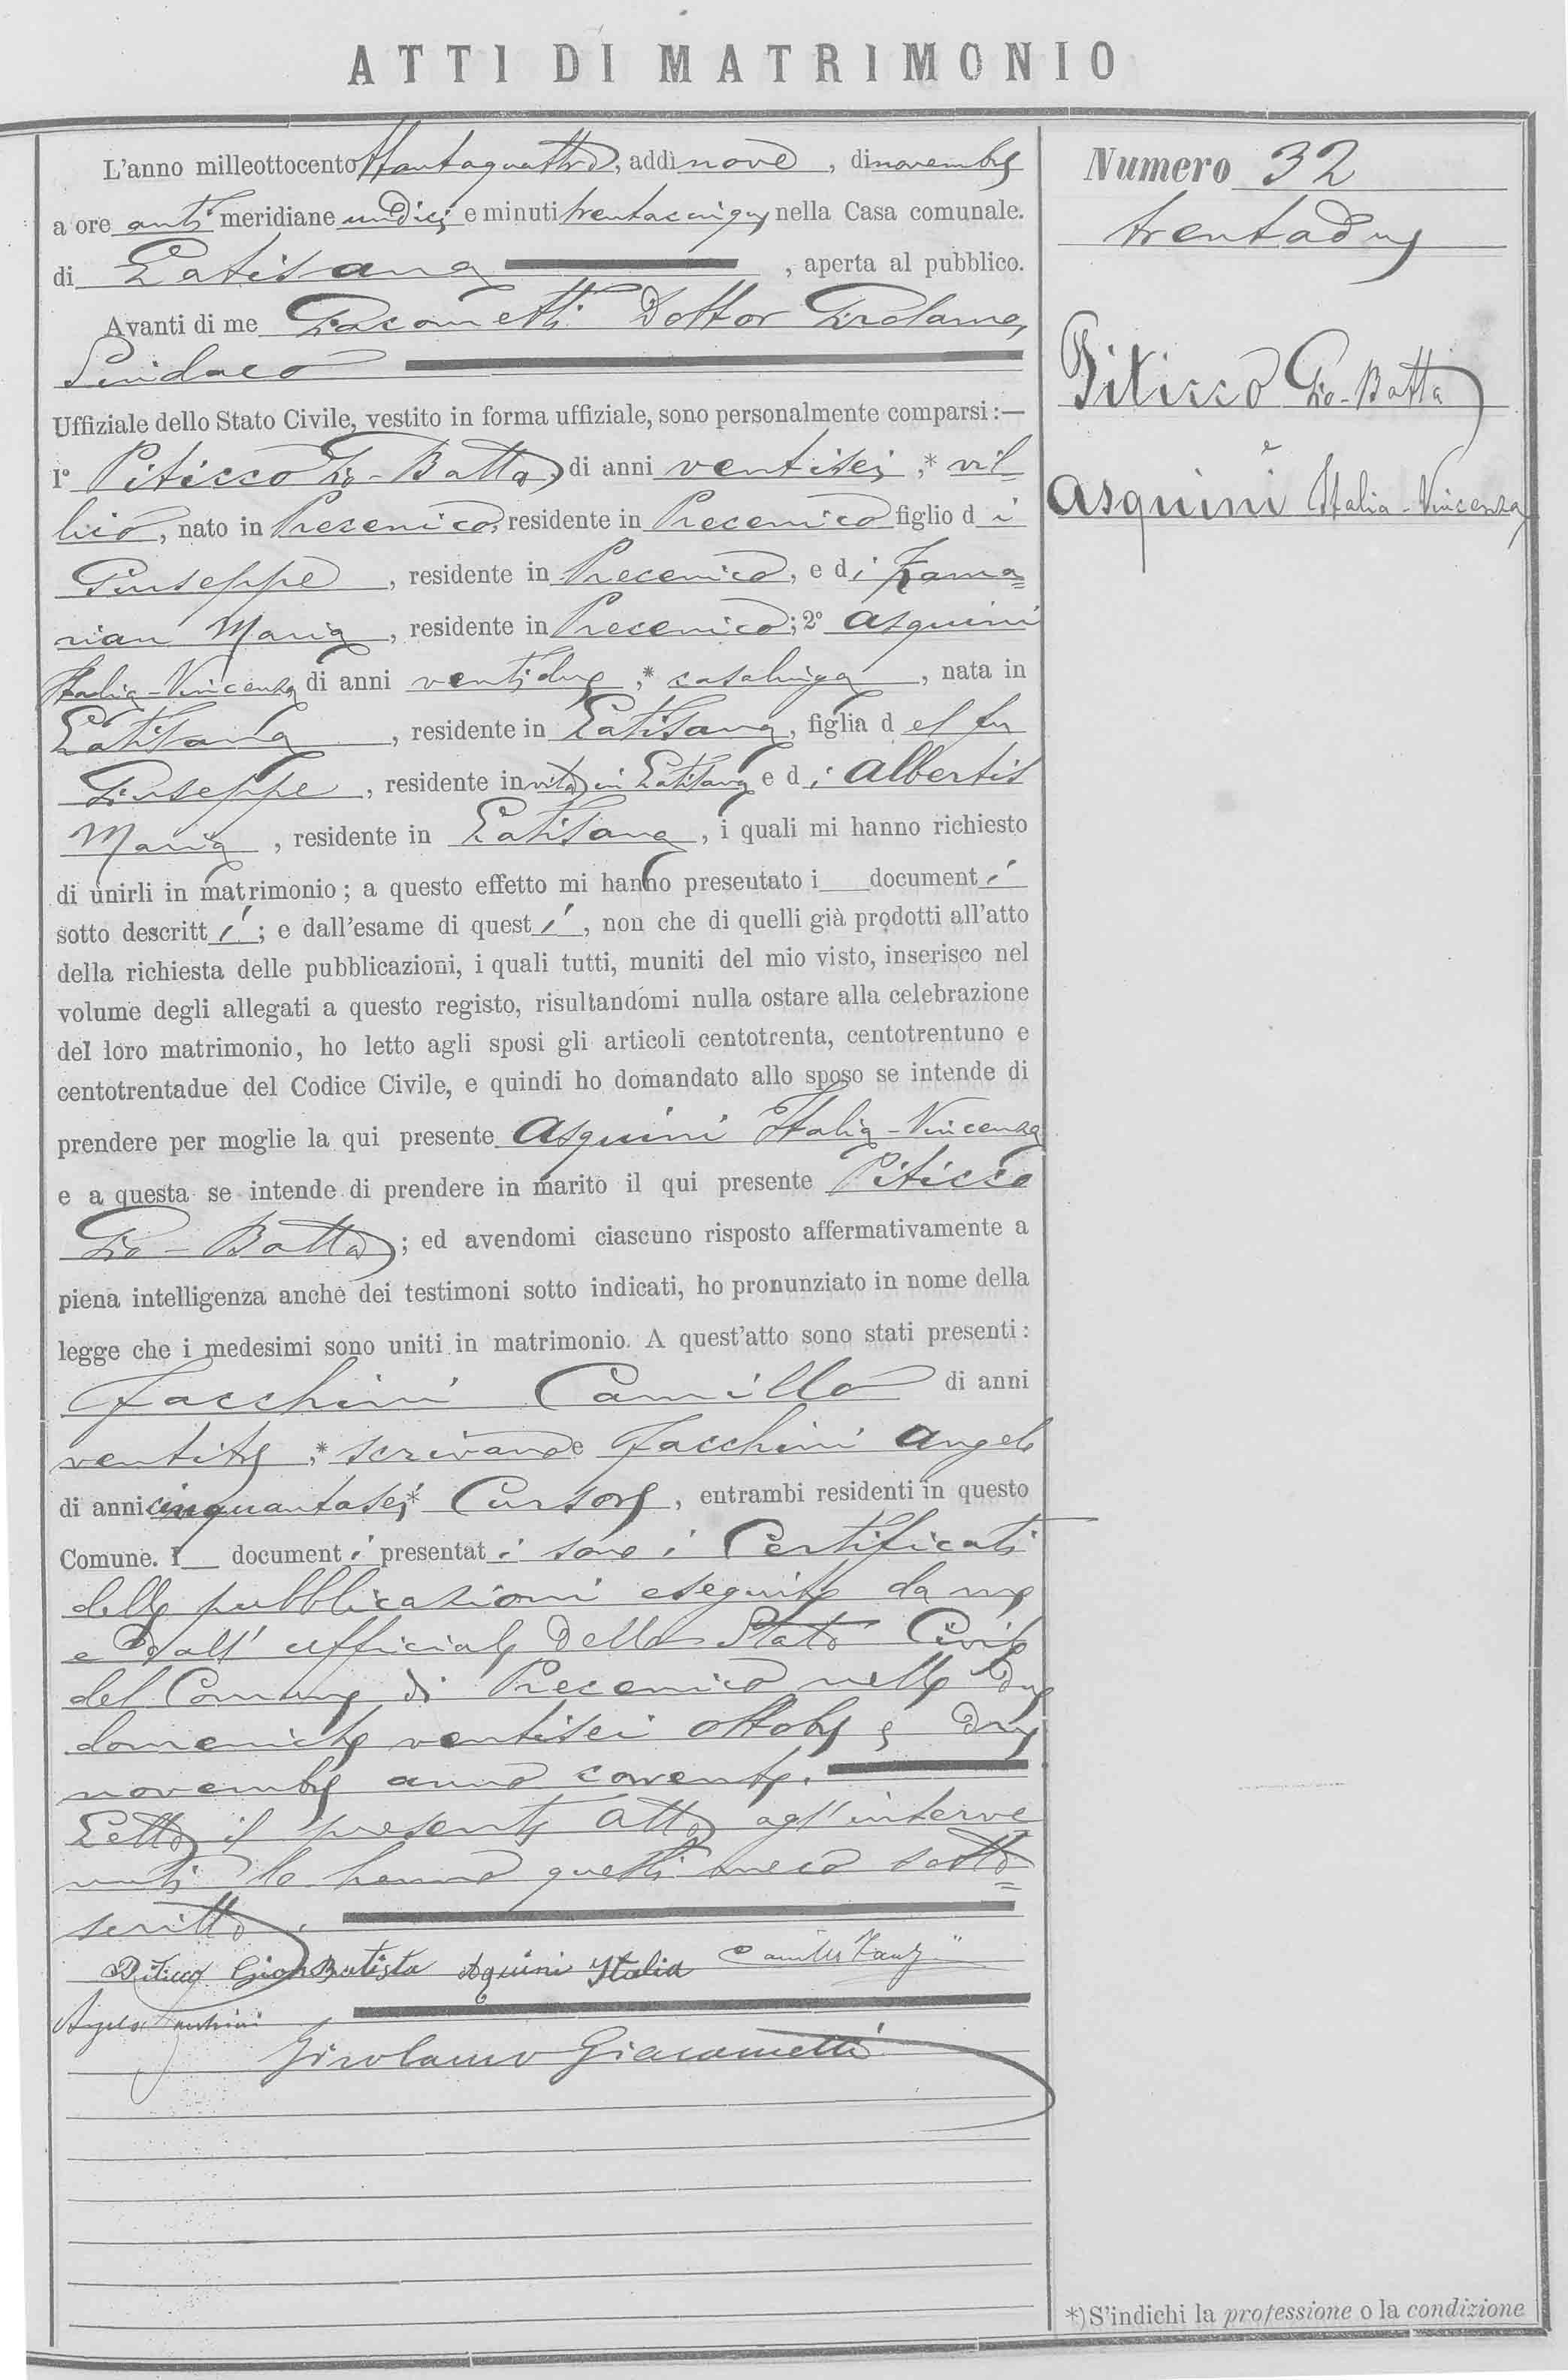 ATTI DI MATRIMONIO
L'anno milleottocento ottantaquattro, addì nove, di novembre
a ore anti meridiane undici e minuti trentacinque nella Casa comunale.
di Latisana, aperta al pubblico.
Avanti di me Giacometti Dottor Girolamo,
Sindaco
Uffiziale dello Stato Civile, vestito in forma uffiziale, sono personalmente comparsi :—
1° Piticco Gio-Batta, di anni ventisei,* vil
lico, nato in Precenico, residente in Precenico figlio di
Giuseppe, residente in Precenico, e di Zama=
rian Maria, residente in Precenico; 2° Asquini
Italia-Vincenza di anni ventidue,* casalinga, nata in
Latisana, residente in Latisana, figlia del fu
Giuseppe, residente in vita in Latisana e di Albertis
Maria, residente in Latisana, i quali mi hanno richiesto
di unirli in matrimonio; a questo effetto mi hanno presentato i documenti
sotto descritti; e dall'esame di questi, non che di quelli già prodotti all'atto
della richiesta delle pubblicazioni, i quali tutti, muniti del mio visto, inserisco nel
volume degli allegati a questo registo, risultandomi nulla ostare alla celebrazione
del loro matrimonio, ho letto agli sposi gli articoli centotrenta, centotrentuno e
centotrentadue del Codice Civile, e quindi ho domandato allo sposo se intende di
prendere per moglie la qui presente Asquini Italia-Vincenza
e a questa se intende di prendere in marito il qui presente Piticco
Gio-Batta; ed avendomi ciascuno risposto affermativamente a
piena intelligenza anche dei testimoni sotto indicati, ho pronunziato in nome della
legge che i medesimi sono uniti in matrimonio. A quest'atto sono stati presenti:
Facchini Camillo di anni
ventitre,* scrivano e Facchini Angelo
di anni cinquantasei* Cursore, entrambi residenti in questo
Comune. I documenti presentati sono i Certificati
delle pubblicazioni eseguite da me
e dall' ufficiale dello Stato Civile
del Comune di Precenico nelle due
domeniche ventisei ottobre e due
novembre anno corrente.
Letto il presente atto agl'interve
nuti lo hanno questi meco sotto=
scritto.
Piticco Gion Batista Asquini Italia Camillo
Angelo Facchini
Girolamo Giacometti
Numero 32
trentadue
Piticco Gio-Batta
e
Asquini Italia-Vincenza
*) S'indichi la professione o la condizione